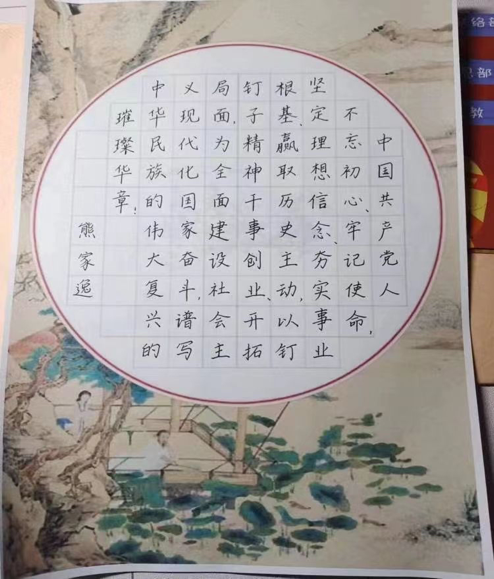 中国共产党人
不忘初心、牢记使命,
坚定理想信念、夯实事业
根基、赢取历史主动,以钉
钉子精神干事创业、开拓
局面,为全面建设社会主
义现代化国家奋斗,谱写
中华民族的伟大复兴的
璀璨华章!
熊家逸
络部
部
教